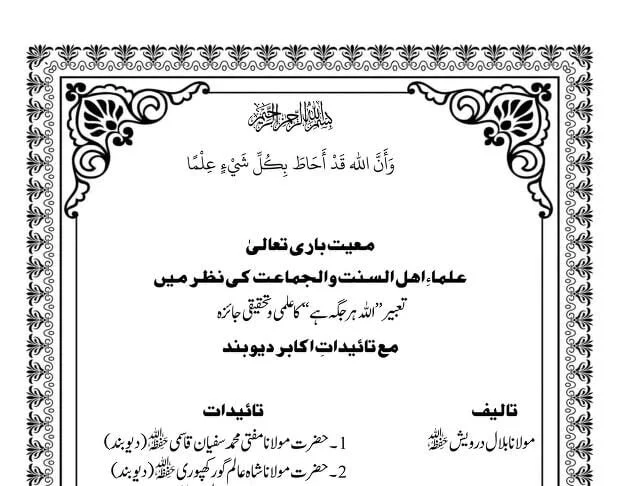 بسم الله الرحمن الرحيم
وَأَنَّ الله قَدْ أَحَاطَ بِكُلِّ شَيْءٍ عِلْمًا
معیت باری تعالیٰ
علماءِ اھل السنت والجماعت کی نظر میں
تعبیر ”اللہ ہر جگہ ہے“ کا علمی وتحقیقی جائزہ
مع تائیداتِ اکابر دیوبند
تالیف
مولانا بلال درویش حفظہ اللہ
تائیدات
1۔ حضرت مولانا مفتی محمد سفیان قاسمی حفظہ اللہ (دیوبند)
2۔ حضرت مولانا شاہ عالم گورکھپوری حفظہ اللہ (دیوبند)